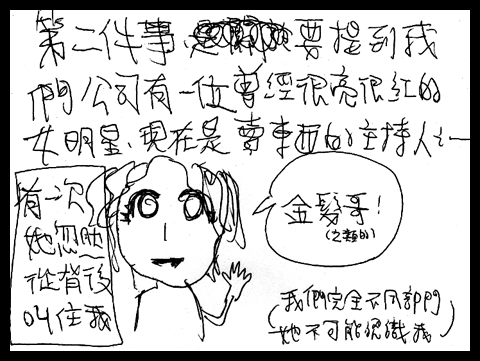 第二件事、要提到我
們公司有一位曾經很亮很紅的
女明星、現在是賣東西的主持人之一
有一次
她忽然
從背後
叫住我
金髮哥!
(之類的)
(我們完全不同部門
她不可能認識我)